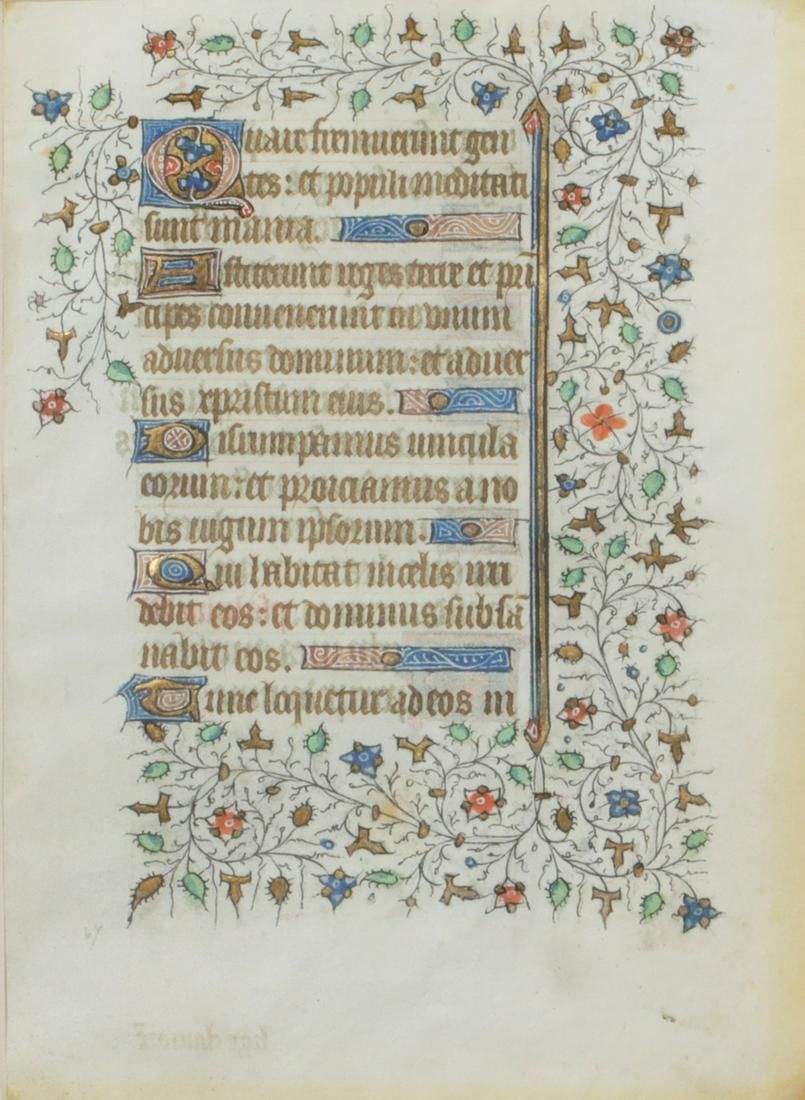 Quare fremuerunt gen
tes: et populi meditati
sunt inania.
Astiterunt reges terre et prī
cipes convenerunt in vnum
adversus dominum: et aduer
sus xpristum eius.
Disrumpamus uincula
eorum: et proiciamus a no
bis iugum ipsorum.
Qui habitat in celis irri
debit eos: et dominus subsā
nabit eos.
Tunc loquetur ad eos in